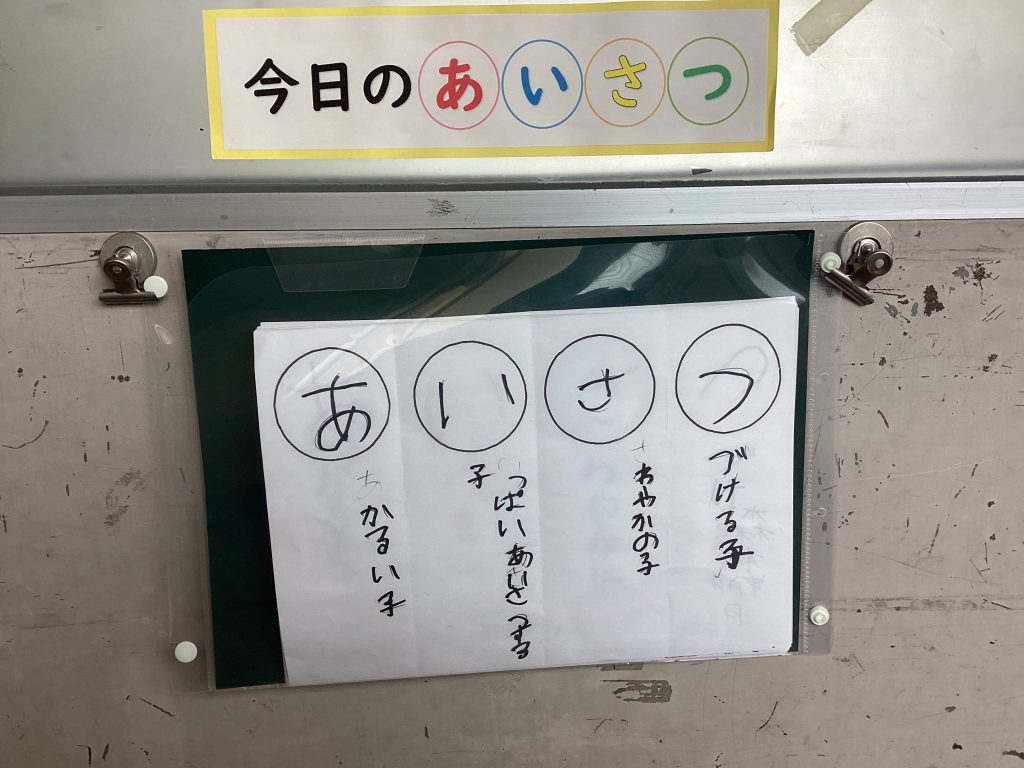 今日のあいさつ
あ
い
さ
つ
あかるい子
いっぱいあいさつする
子
さわやかの子
づける子